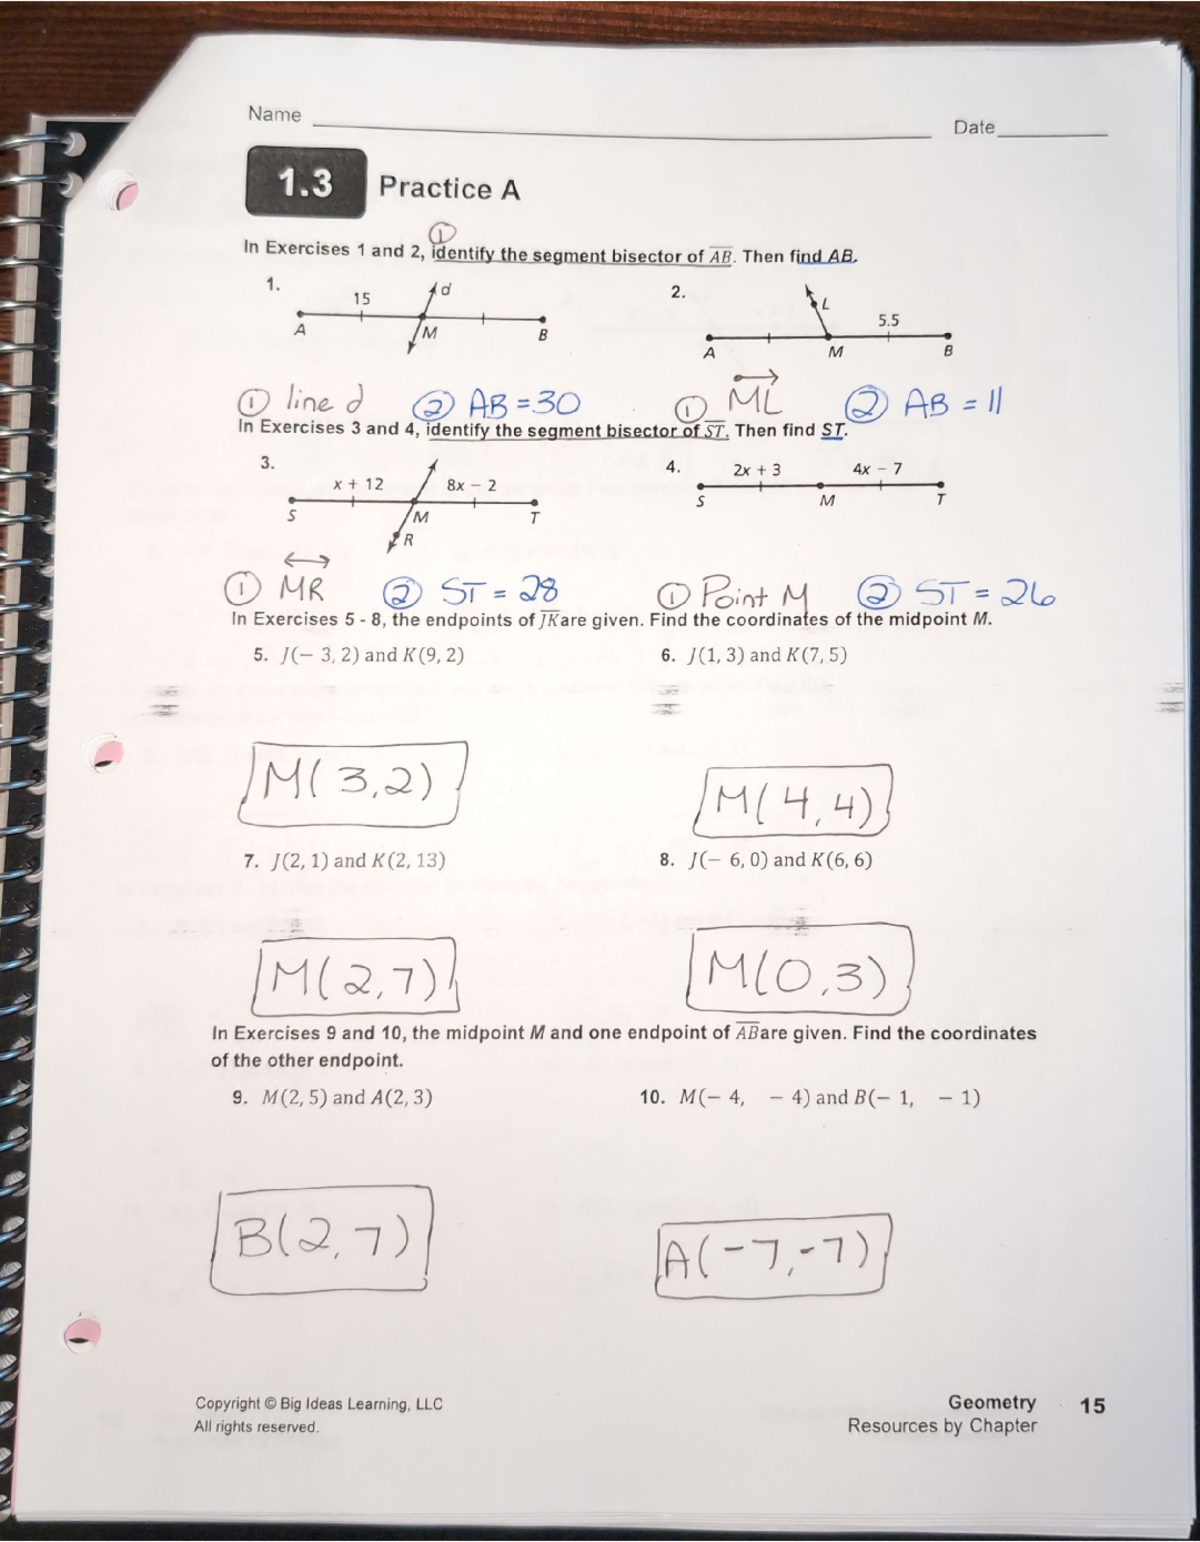 Name Date
1.3 Practice A
①
In Exercises 1 and 2, identify the segment bisector of AB. Then find AB.
1. 15 d A M B
2. L 5.5 A M B
① line d ② AB = 30 ① ML ② AB = 11
In Exercises 3 and 4, identify the segment bisector of ST. Then find ST.
3. x + 12 8x – 2 S M T R
4. 2x + 3 4x – 7 S M T
① MR ② ST = 28 ① Point M ② ST = 26
In Exercises 5 - 8, the endpoints of JK are given. Find the coordinates of the midpoint M.
5. J(– 3, 2) and K(9, 2) 6. J(1, 3) and K(7, 5)
M(3,2) M(4,4)
7. J(2, 1) and K(2, 13) 8. J(– 6, 0) and K(6, 6)
M(2,7) M(0,3)
In Exercises 9 and 10, the midpoint M and one endpoint of AB are given. Find the coordinates
of the other endpoint.
9. M(2, 5) and A(2, 3) 10. M(– 4, – 4) and B(– 1, – 1)
B(2,7) A(-7,-7)
Copyright © Big Ideas Learning, LLC Geometry 15
All rights reserved. Resources by Chapter